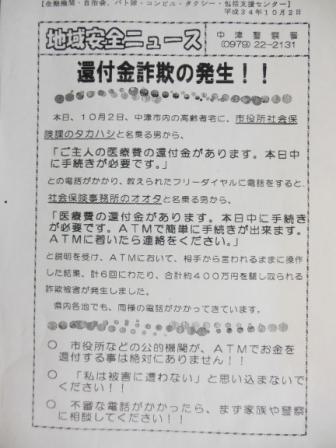 【金融機関・自治会、パト隊・コンビニ・タクシー・包括支援センター】
平成24年10月2日
地域安全ニュース
中津警察署
(0979) 22-2131
還付金詐欺の発生！！
本日、10月2日、中津市内の高齢者宅に、市役所社会保
険課のタカハシと名乗る男から、
「ご主人の医療費の還付金があります。本日中
に手続きが必要です。」
との電話がかかり、教えられたフリーダイヤルに電話をすると、
社会保険事務所のオオタと名乗る男から、
「医療費の還付金があります。本日中に手続き
が必要です。ATMで簡単に手続きが出来ます。
ATMに着いたら連絡をください。」
と説明を受け、ATMにおいて、相手から言われるままに操作
した結果、計6回にわたり、合計約400万円を騙し取られる
詐欺被害が発生しました。
県内各地でも、同様の電話がかかってきています。
○ 市役所などの公的機関が、ATMでお金を
還付する事は絶対にありません！！
○ 「私は被害に遭わない」と思い込まないで
ください！！
○ 不審な電話がかかったら、まず家族や警察
に相談してください！！